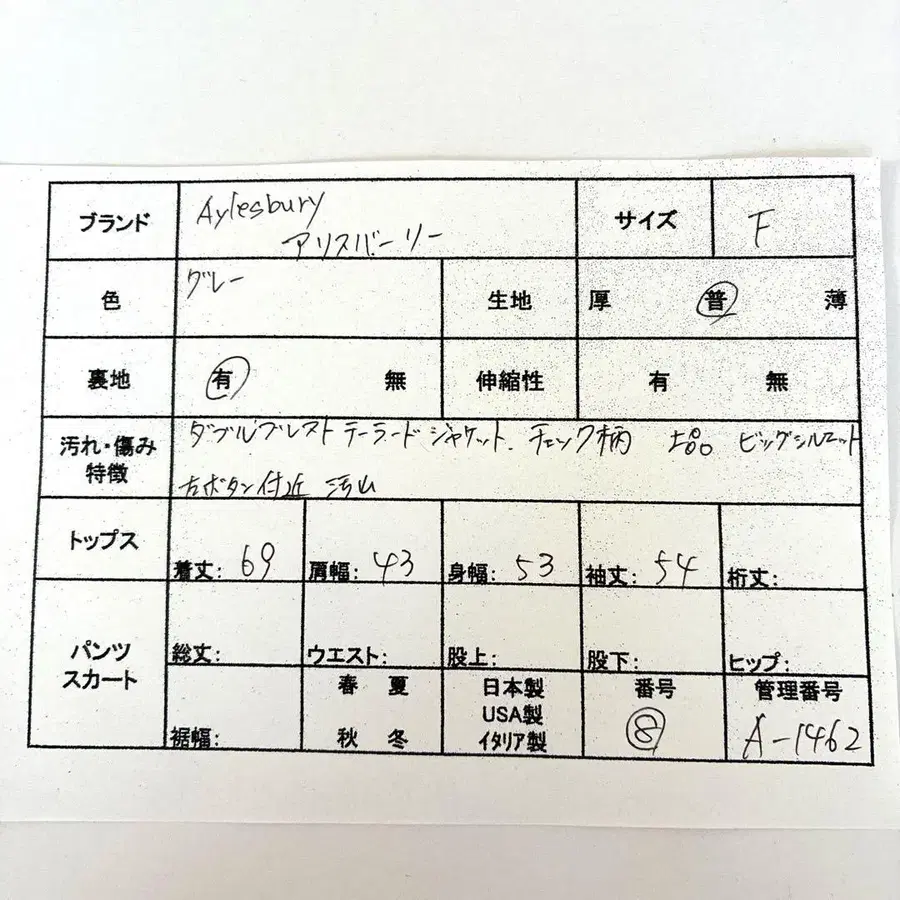 ブランド Aylesbury サイズ F
アリスバーリー
色 グレー 生地 厚 普 薄
裏地 有 無 伸縮性 有 無
汚れ・傷み ダブルブレストテーラードジャケット. チェック柄 上品 ビッグシルエット
特徴 右ボタン付近 汚れ
トップス 着丈: 69 肩幅: 43 身幅: 53 袖丈: 54 裄丈:
パンツ
スカート
総丈: ウエスト: 股上: 股下: ヒップ:
裾幅: 春 夏 日本製 番号 管理番号
USA製
秋 冬 イタリア製 8 A-1462